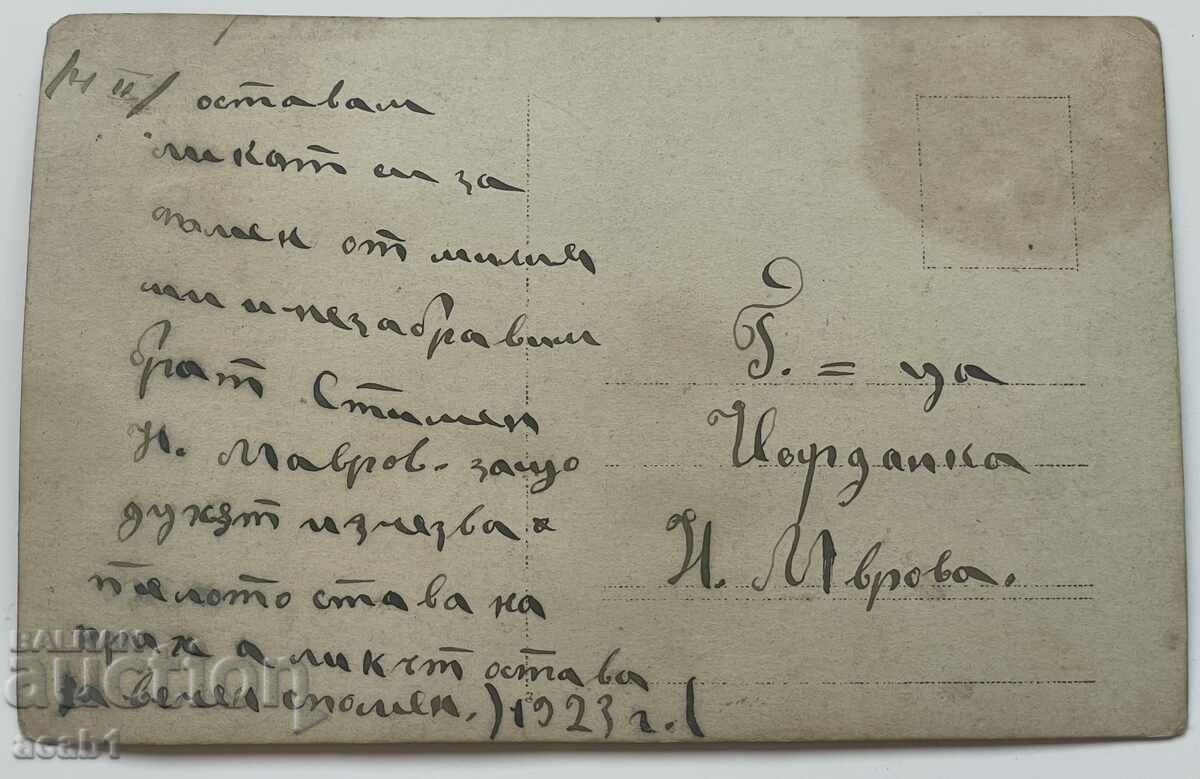 оставам
ликът си за
спомен от милия
ми и незабравим
брат Стилиен
Н. Мавров. защо
духът излезва и
тялото става на
прах а ликът остава
за вечен спомен. )1923 г.(
Г. = ца
Йорданка
Н. Мврова.
BALKAN
auction
acab1